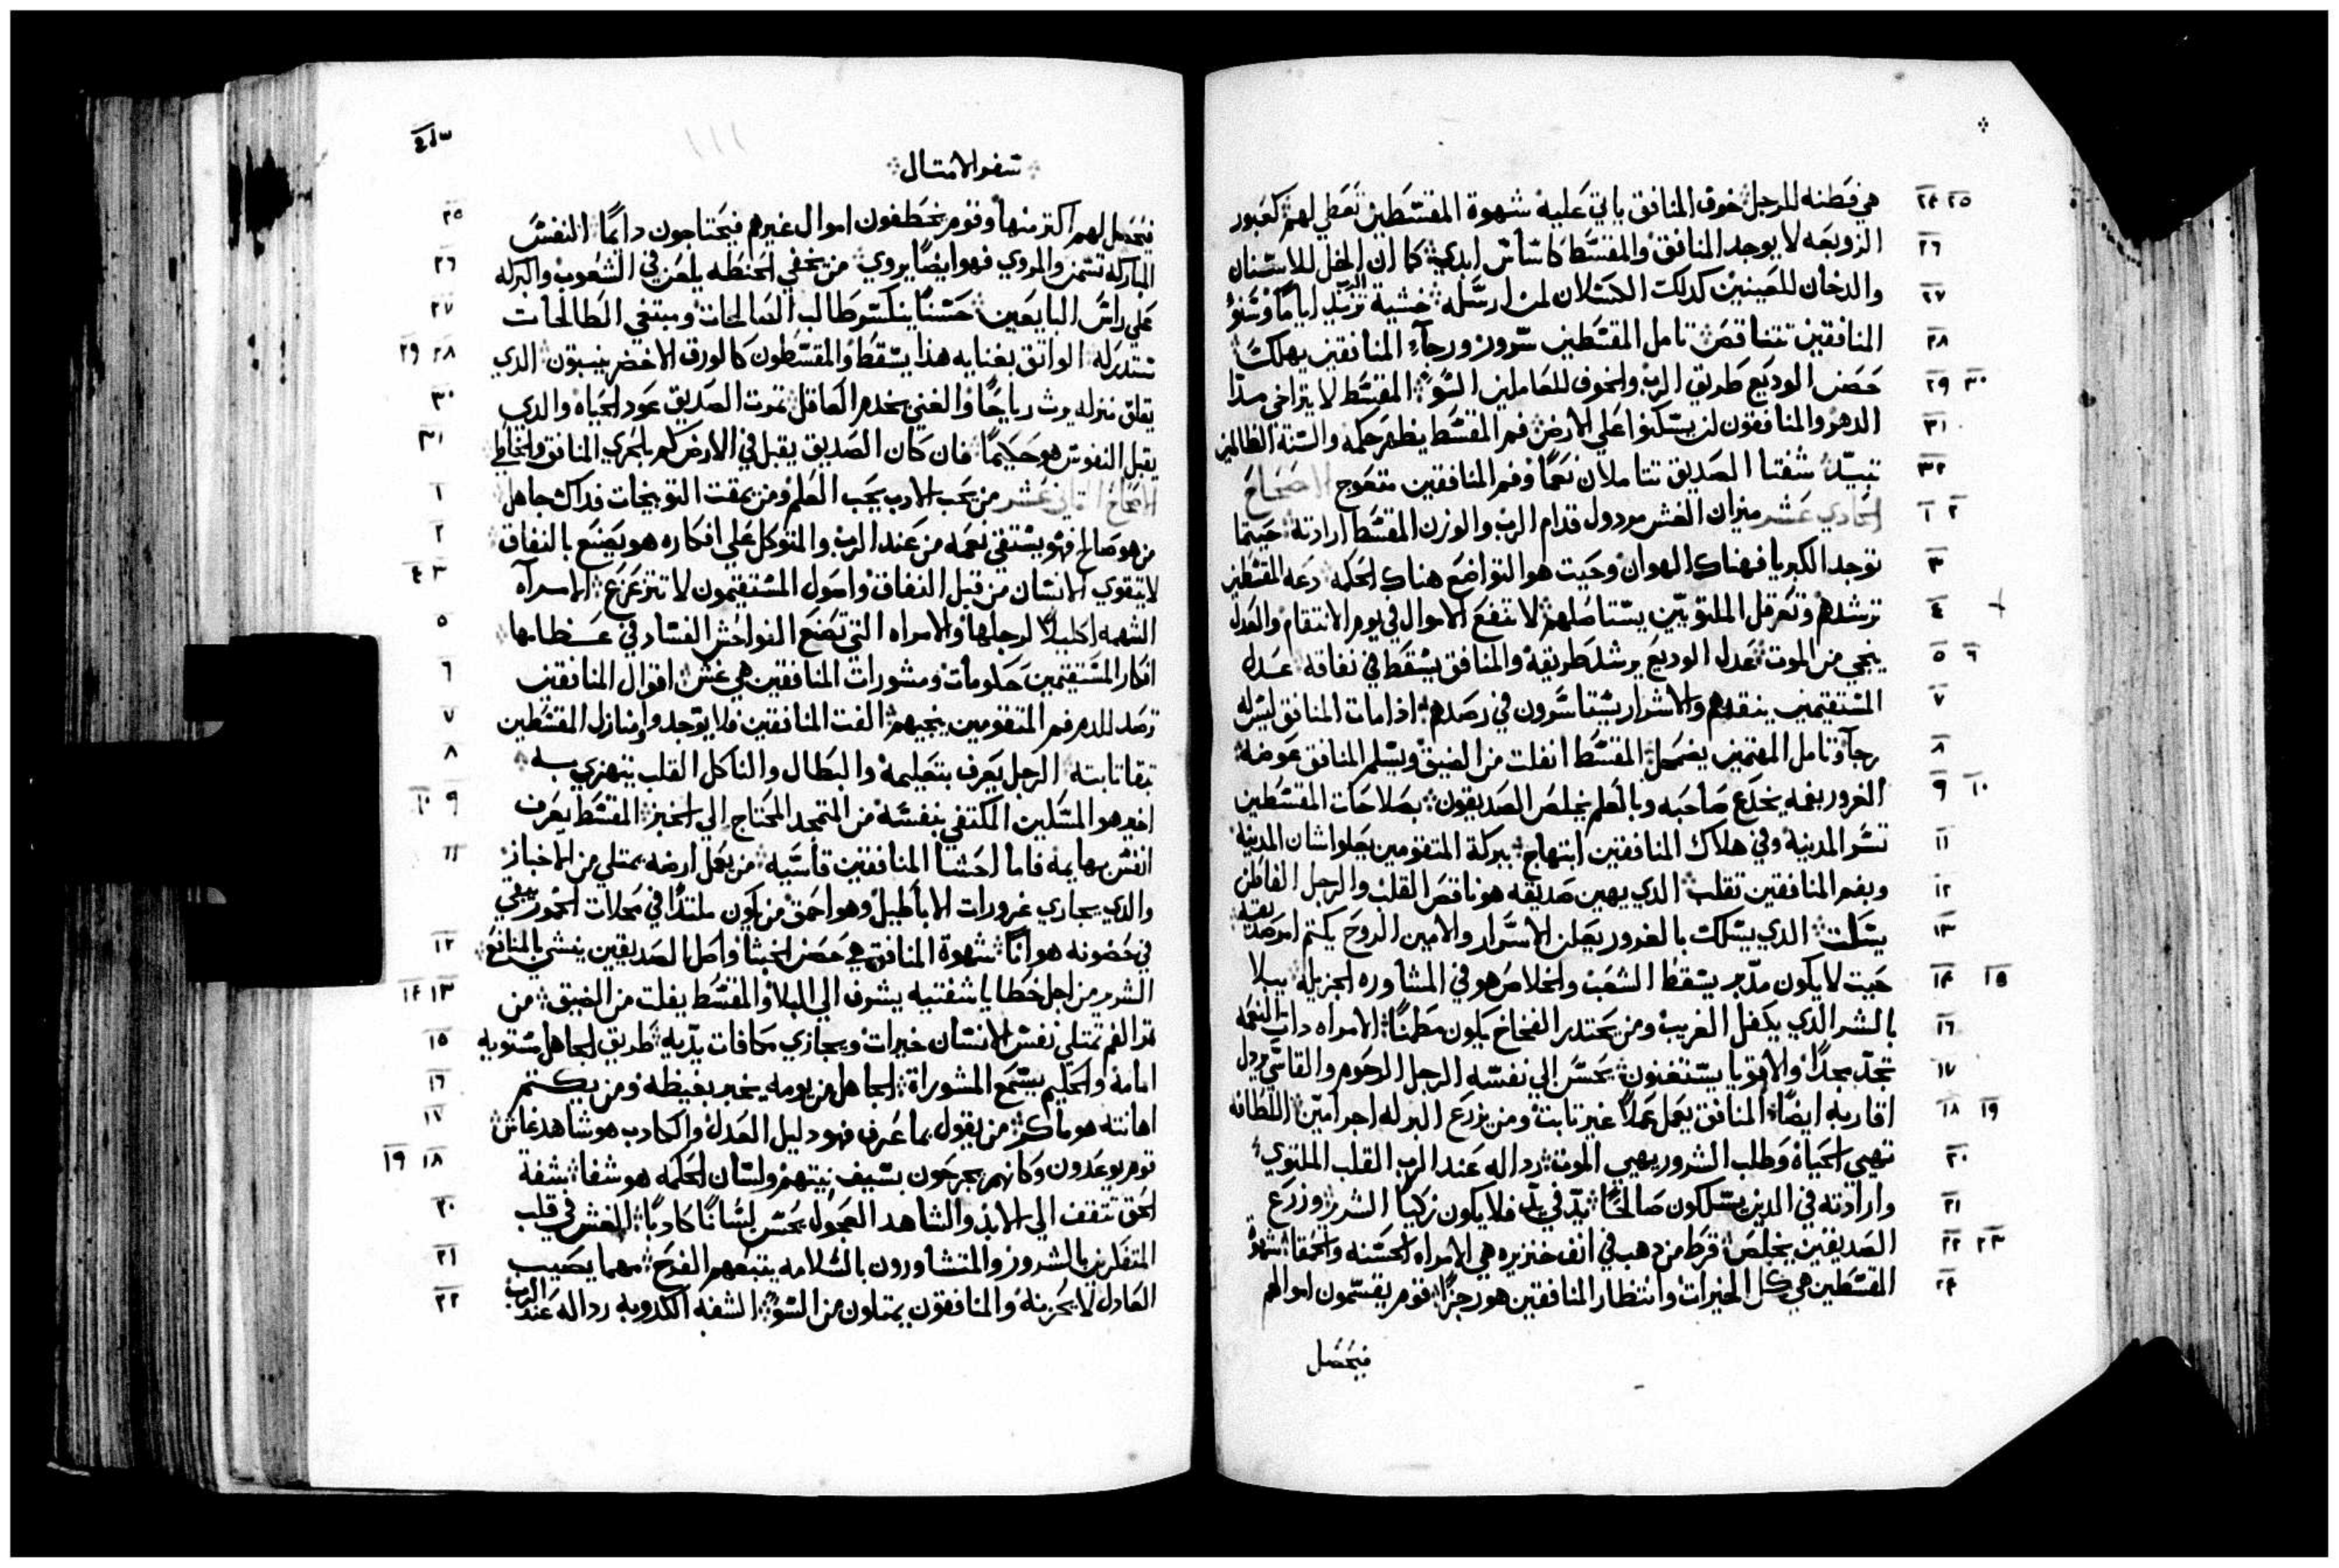 هي فطنه للرجل خوف المنافق ياتي عليه شهوة المقسطين تعطي لهم كعبور
٢٤ ٢٥
الزوبعه لا يوجد المنافق والمقسط كاساس ابدي كما ان الخل للاسنان
٢٦
والدخان للعينين كدلك الكسلان لمن ارسله خشية الرب تزيد اياما وسنو
٢٧
المنافقين تتناقص تامل المقسطين سرور ورجآء المنافقين يهلك
٢٨
حصن الوديع طريق الرب والخوف للعاملين السو المقسط لا يتراخي مدا
٢٩ ٣٠
الدهر والمنافقون لن يسكنوا علي الارض فم المقسط يظهر حكمه والسنة الظالمين
٣١
تبيد شفتا الصديق تتاملان نعما وفم المنافقين متعوج الاصحاح
٣٢
الحادي عشر ميزان الغش مردول قدام الرب والوزن المقسط ارادته حيتما
١ ٢
توجد الكبريا فهناك الهوان وحيت هو التواضع هناك الحكمه دعه المقسطين
٣
ترشدهم وتعرقل الملتويين يستاصلهم لا تنفع الاموال في يوم الانتقام والعدل
٤
ينجي من الموت عدل الوديع يرشد طريقه والمنافق يسقط في نفاقه عدل
٥ ٦
المستقيمين ينقدهم والاشرار يتقاسرون في رصدهم ادا مات المنافق ليس له
٧
رجآ وتامل المغتمين يضمحل المقسط انفلت من الضيق ويسلم المنافق عوضه
٨
الغرور بفمه يخدع صاحبه وبالعلم يخلص الصديقون بصلاحات المقسطين
٩ ١٠
تسر المدينه وفي هلاك المنافقين ابتهاج ببركة المتقومين يعلوا شان المدينه
١١
وبفم المنافقين تقلب الدي يهين صديقه هو ناقص القلب والرجل الفاطن
١٢
يسكت الدي يسلك بالغرور يعلن الاسرار والامين الروح يكتم امر صديقه
١٣
حيت لا يكون مدبر يسقط الشعب والخلاص هو في المشاوره الجزيله يبلا
١٤ ١٥
بالشر الدي يكفل الغريب ومن يحتدر الفخاخ يكون مطمنا الامراه دات النعمه
١٦
تجد مجدا والاقويا يستغنون يحسن الي نفسه الرجل الرحوم والقاسي يردل
١٧
اقاربه ايضا المنافق يعمل عملا غير تابت ومن يزرع البر له اجر امين اللطافه
١٨ ١٩
تهيي الحياة وطلب الشرور يهيي الموت رداله عند الرب القلب الملتوي
٢٠
وارادته في الدين يسلكون صالحا يد في يد فلا يكون زكيا الشرير وزرع
٢١
الصديقين يخلص قرط من دهب في انف خنزيره هي الامراه الحسنه والحمقا شهوة
٢٢ ٢٣
المقسطين هي كل الخيرات وانتظار المنافقين هو رجزا قوم يقسمون اموالهم
٢٤
فيحصل
سفر الامتال
فيحصل لهم اكتر منها وقوم يخطفون اموال غيرهم فيحتاجون دايما النفس
٢٥
المباركه تسمن والمروي فهو ايضا يروي من يخفي الحنطه يلعن في الشعوب والبركه
٢٦
علي راس البايعين حسنا يبتكر طالب الصالحات ومبتغي الطالحات
٢٧
تستدركه الواتق بغنايه هدا يسقط والمقسطون كالورق الاخضر ينبتون الدي
٢٨ ٢٩
يقلق منزله يرث رياحا والغبي يخدم العاقل تمرت الصديق عود الحياه والدي
٣٠
يقبل النفوس هو حكيما فان كان الصديق يقبل في الارض كم بالحري المنافق والخاطي
٣١
الاصحاح التاني عشر من يحب الادب يحب العلم ومن يمقت التوبيخات فداك جاهل
١
من هو صالح فهو يستقي نعمه من عند الرب والمتوكل علي افكاره هو يصنع بالنفاق
٢
لا يتقوي الانسان من قبل النفاق واصول المستقيمون لا تتزعزع الامراه
٣ ٤
الشهمه اكليلا لرجلها والامراه التي تصنع الفواحش الفساد في عظامها
٥
افكار المستقيمين حكومات ومشورات المنافقين هي غش اقوال المنافقين
٦
ترصد للدم فم المتقومين ينجيهم الفت المنافقين فلا يوجدوا ومنازل المقسطين
٧
تبقا تابته الرجل يعرف بتعليمه والبطال والناكل القلب يتهزي به
٨
اخير هو المسكين المكتفي بنفسه من المتمجد المحتاج الي الخبز المقسط يعرف
٩ ١٠
انفس بهايمه فاما احشا المنافقين قاسيه من يعمل ارضه يمتلي من الاخباز
١١
والدي يجاري غرورات الاباطيل وهو احمق من يكون ملتدا في محلات الخمور يبقي
في حصونه هوانا شهوة المنافق هي حصن الخبثا واصل الصديقين ينشي بالمنافع
١٢
الشرير من اجل خطايا شفتيه يشرف الي البلا والمقسط يفلت من الضيق من
١٣ ١٤
تمر الفم تمتلي نفس الانسان خيرات ويجازي مكافات يديه طريق الجاهل مستويه
١٥
امامه والحكيم يستمع المشوراة الجاهل من يومه يخبر بغيظه ومن يكتم
١٦
اهانته هو ماكر من يقول بما عرف فهو دليل العدل والكادب هو شاهد غاش
١٧
قوم يوعدون وكانهم يجرحون بسيف نيتهم ولسان الحكمه هو شفا شفة
١٨ ١٩
الحق تتقف الي الابد والشاهد العجول يحسن لسانا كادبا الغش في قلب
٢٠
المتفكرين بالشرور والمتشاورون بالسلامه يتبعهم الفرح مهما يصيب
٢١
العادل لا يحزنه والمنافقون يمتلون من السو الشفه الكدوبه رداله عند الرب
٢٢